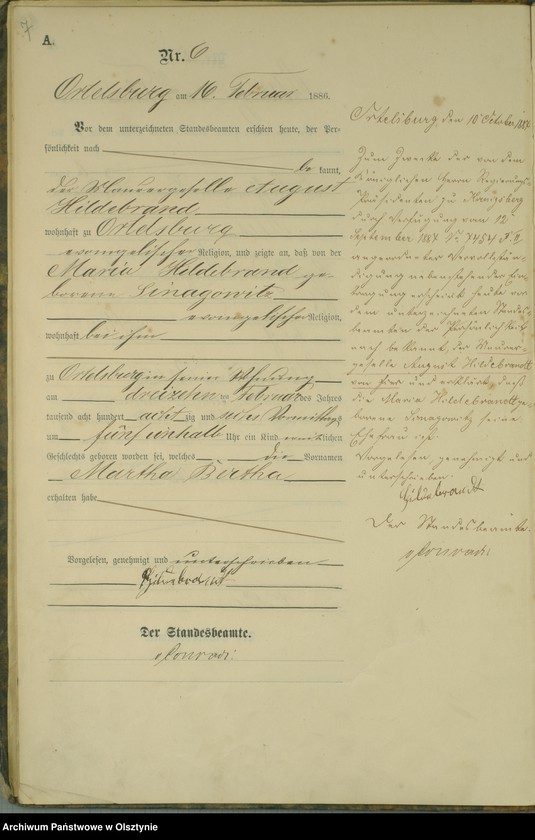 7
A.
Nr. 6
Ortelsburg am 16. Februar 1886.
Vor dem unterzeichneten Standesbeamten erschien heute, der Per-
sönlichkeit nach
be kannt,
der Maurergeselle August
Hildebrand
wohnhaft zu Ortelsburg
evangelischer Religion, und zeigte an, daß von der
Maria Hildebrand ge-
borene Sinagowitz
evangelischer Religion,
wohnhaft bei ihm
zu Ortelsburg in seiner Wohnung
am dreizehnten Februar des Jahres
tausend acht hundert achtzig und sechs Vormittags
um fünf einhalb Uhr ein Kind weiblichen
Geschlechts geboren worden sei, welches die Vornamen
Martha Bertha
erhalten habe
Vorgelesen, genehmigt und unterschrieben
Hildebrandt
Der Standesbeamte.
Ortelsburg den 10 October 188
Zum Zwecke der von dem
Königlichen Herrn Regierungs-
Präsidenten zu Königsberg
durch Verfügung vom 12
September 1887 No 7454
angeordneten Vervollstän-
digung nebenstehender Ein-
tragung erscheint heute vor
dem unterzeichneten Standes-
beamten der Persönlichkeit
nach bekannt, der Maurer-
geselle August Hildebrandt
von hier und erklärt, daß
die Maria Hildebrandt ge-
borene Sinagowitz seine
Ehefrau ist
Vorgelesen, genehmigt und
unterschrieben.
Hildebrandt
Der Standesbeamte.
Archiwum Państwowe w Olsztynie